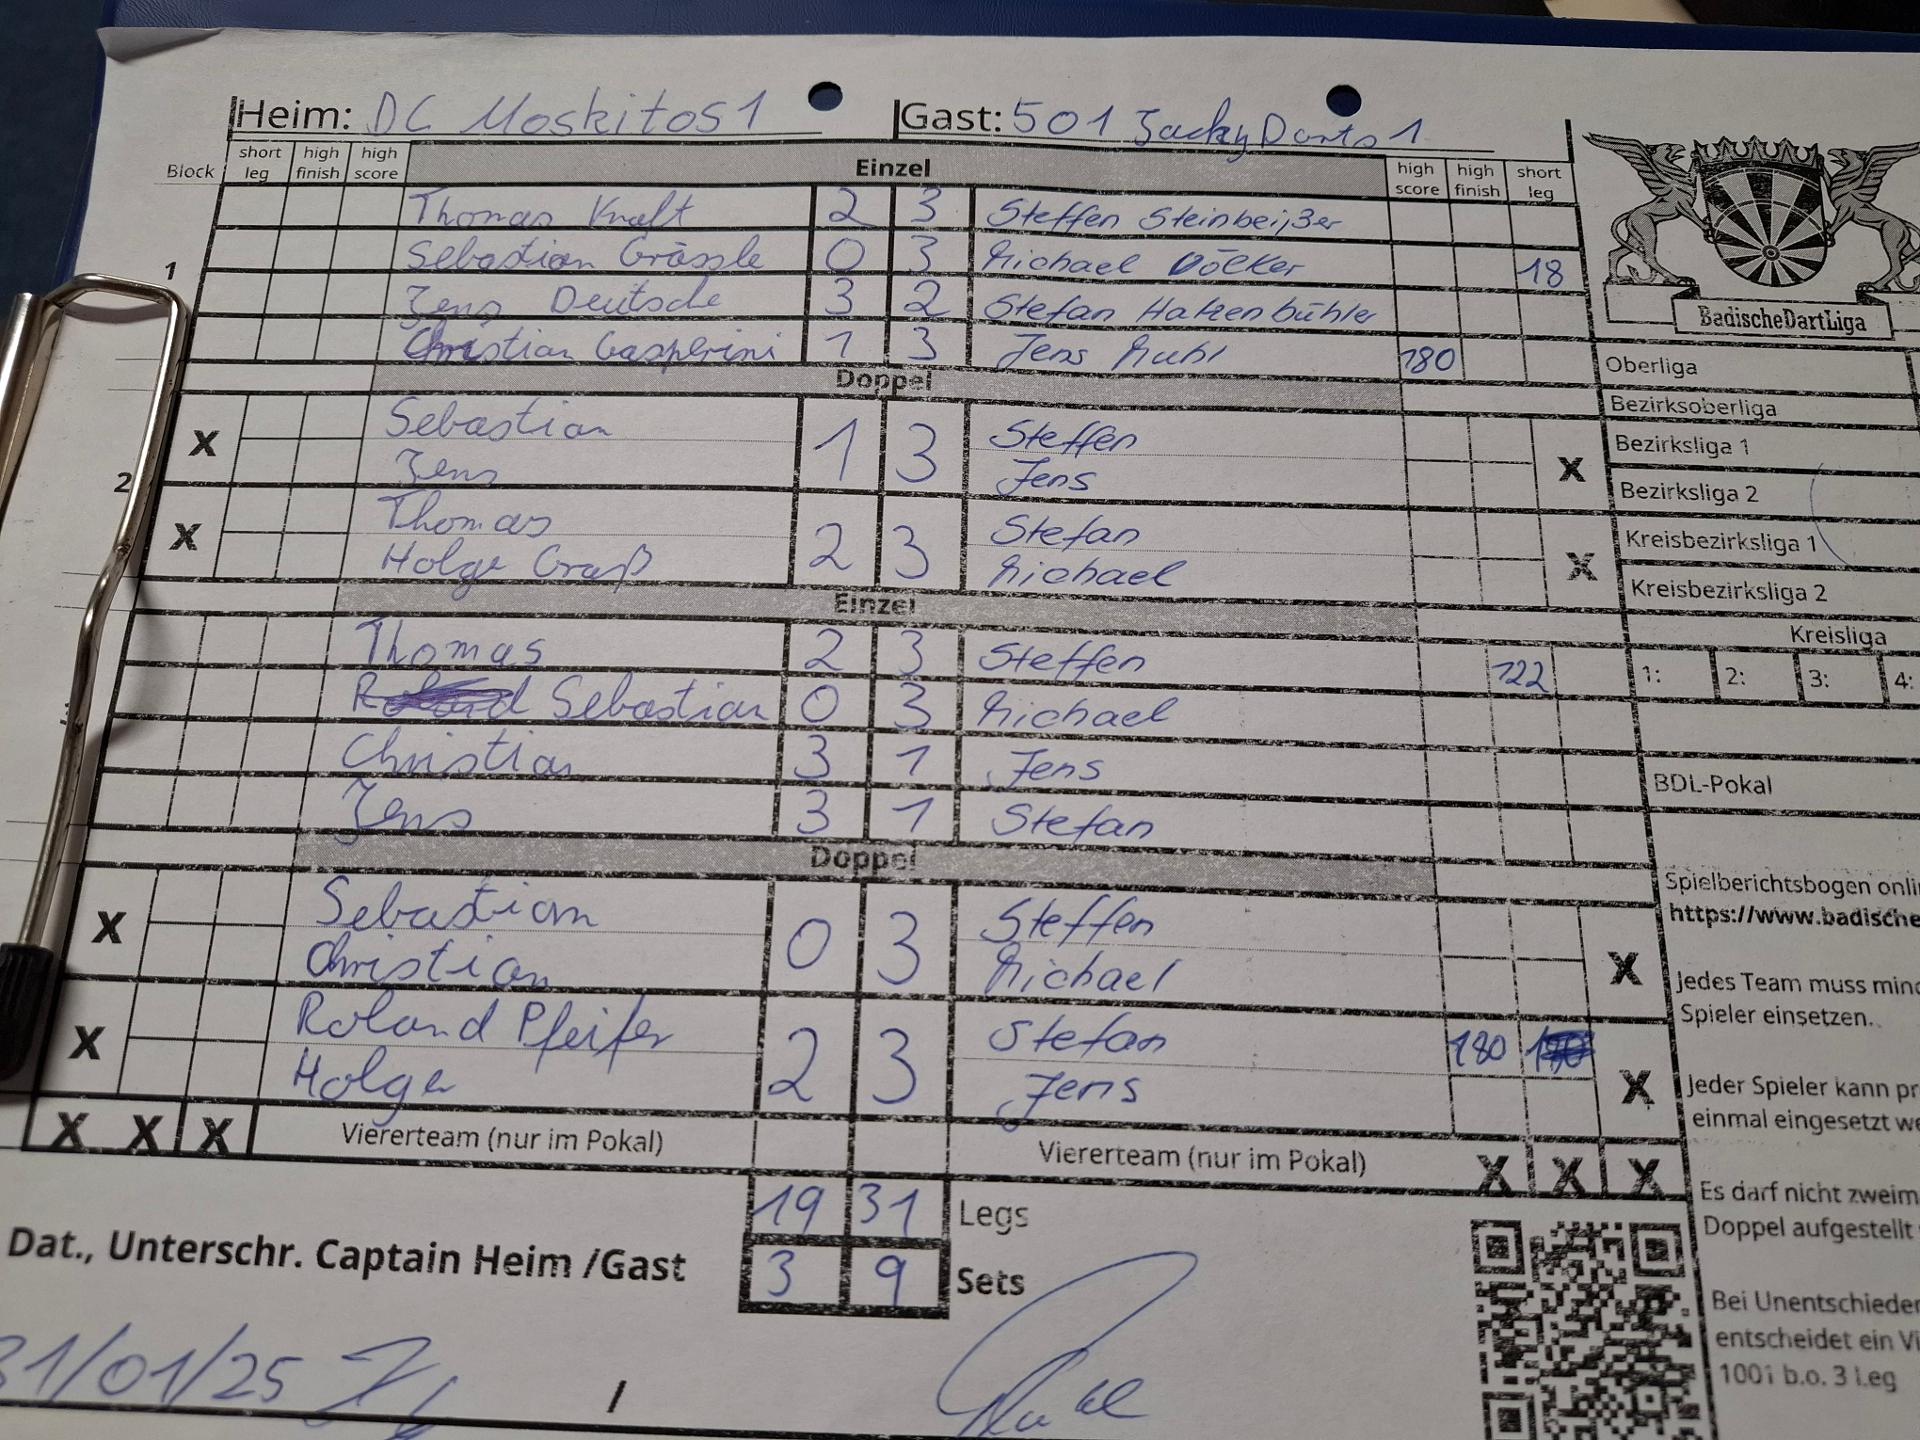 Heim: DC Moskitos 1 Gast: 501 JackyDarts 1
Block short leg high finish high score Einzel high score high finish short leg
Thomas Kraft 2 3 Steffen Steinbeißer
1 Sebastian Grässle 0 3 Michael Völker 18
Jens Deutsche 3 2 Stefan Hatzenbühler
Christian Gasperini 1 3 Jens Ruhl 180
BadischeDartLiga
Oberliga
Doppel
Bezirksoberliga
X Sebastian 1 3 Steffen X Bezirksliga 1
2 Jens Jens Bezirksliga 2
X Thomas 2 3 Stefan X Kreisbezirksliga 1
Holge Graß Michael Kreisbezirksliga 2
Einzel
Kreisliga
Thomas 2 3 Steffen 122 1: 2: 3: 4:
Sebastian 0 3 Michael
Christian 3 1 Jens BDL-Pokal
Jens 3 1 Stefan
Doppel
Spielberichtsbogen onli
https://www.badische
X Sebastian 0 3 Steffen X
Christian Michael
Jedes Team muss mind
Spieler einsetzen.
X Roland Pfeifer 2 3 Stefan 180 X
Holge Jens
Jeder Spieler kann pr
einmal eingesetzt we
X X X Viererteam (nur im Pokal) Viererteam (nur im Pokal) X X X
19 31 Legs
3 9 Sets
Es darf nicht zweim
Doppel aufgestellt
Dat., Unterschr. Captain Heim /Gast
Bei Unentschieden
entscheidet ein Vi
1001 b.o. 3 Leg
31/01/25 /